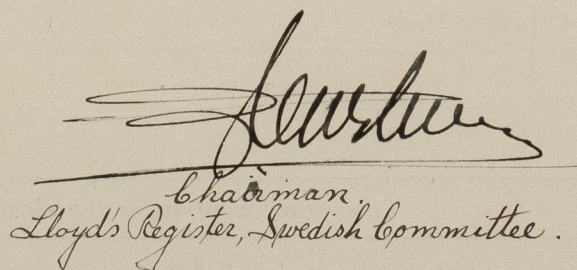 Chairman.
Lloyd's Register, Swedish Committee.